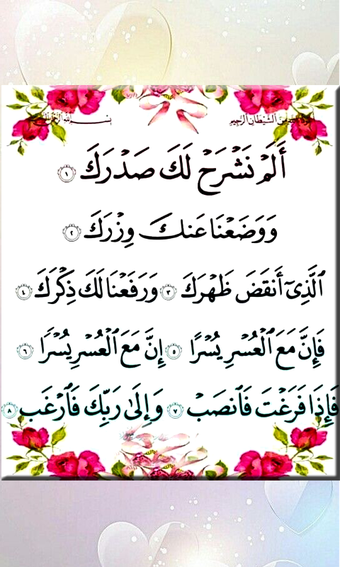 أَلَمْ نَشْرَحْ لَكَ صَدْرَكَ ١
وَوَضَعْنَا عَنكَ وِزْرَكَ ٢
ٱلَّذِىٓ أَنقَضَ ظَهْرَكَ ٣ وَرَفَعْنَا لَكَ ذِكْرَكَ ٤
فَإِنَّ مَعَ ٱلْعُسْرِ يُسْرًا ٥ إِنَّ مَعَ ٱلْعُسْرِ يُسْرًا ٦
فَإِذَا فَرَغْتَ فَٱنصَبْ ٧ وَإِلَىٰ رَبِّكَ فَٱرْغَب ٨